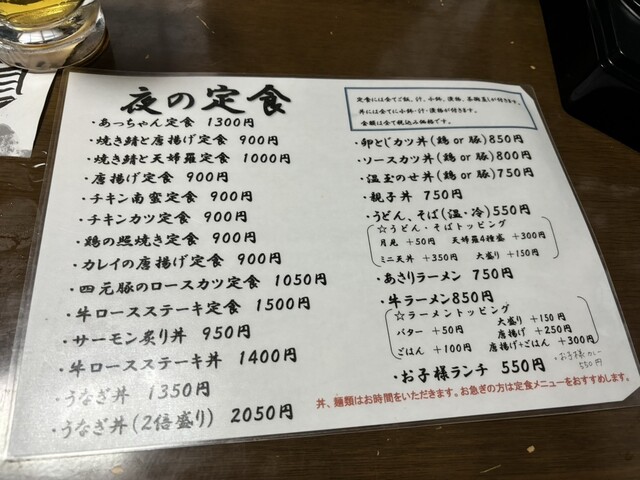 夜の定食
・あっちゃん定食 1300円
・焼き鯖と唐揚げ定食 900円
・焼き鯖と天婦羅定食 1000円
・唐揚げ定食 900円
・チキン南蛮定食 900円
・チキンカツ定食 900円
・鶏の照焼き定食 900円
・カレイの唐揚げ定食 900円
・四元豚のロースカツ定食 1050円
・牛ロースステーキ定食 1500円
・サーモン炙り丼 950円
・牛ロースステーキ丼 1400円
・うなぎ丼 1350円
・うなぎ丼(2倍盛り) 2050円
定食には全てご飯、汁、小鉢、漬物、茶碗蒸しが付きます。
丼には全てに小鉢・汁・漬物が付きます。
金額は全て税込み価格です。
・卵とじカツ丼(鶏 or 豚)850円
・ソースカツ丼(鶏 or 豚)800円
・温玉のせ丼(鶏 or 豚)750円
・親子丼 750円
・うどん、そば(温・冷)550円
☆うどん・そばトッピング
月見 +50円 天婦羅4種盛 +300円
ミニ天丼 +350円 大盛り +150円
・あさりラーメン 750円
・牛ラーメン850円
☆ラーメントッピング
バター +50円 大盛り +150円
唐揚げ +250円
ごはん +100円 唐揚げ+ごはん +300円
・お子様ランチ 550円
・お子様カレー
550円
丼、麺類はお時間をいただきます。お急ぎの方は定食メニューをおすすめします。